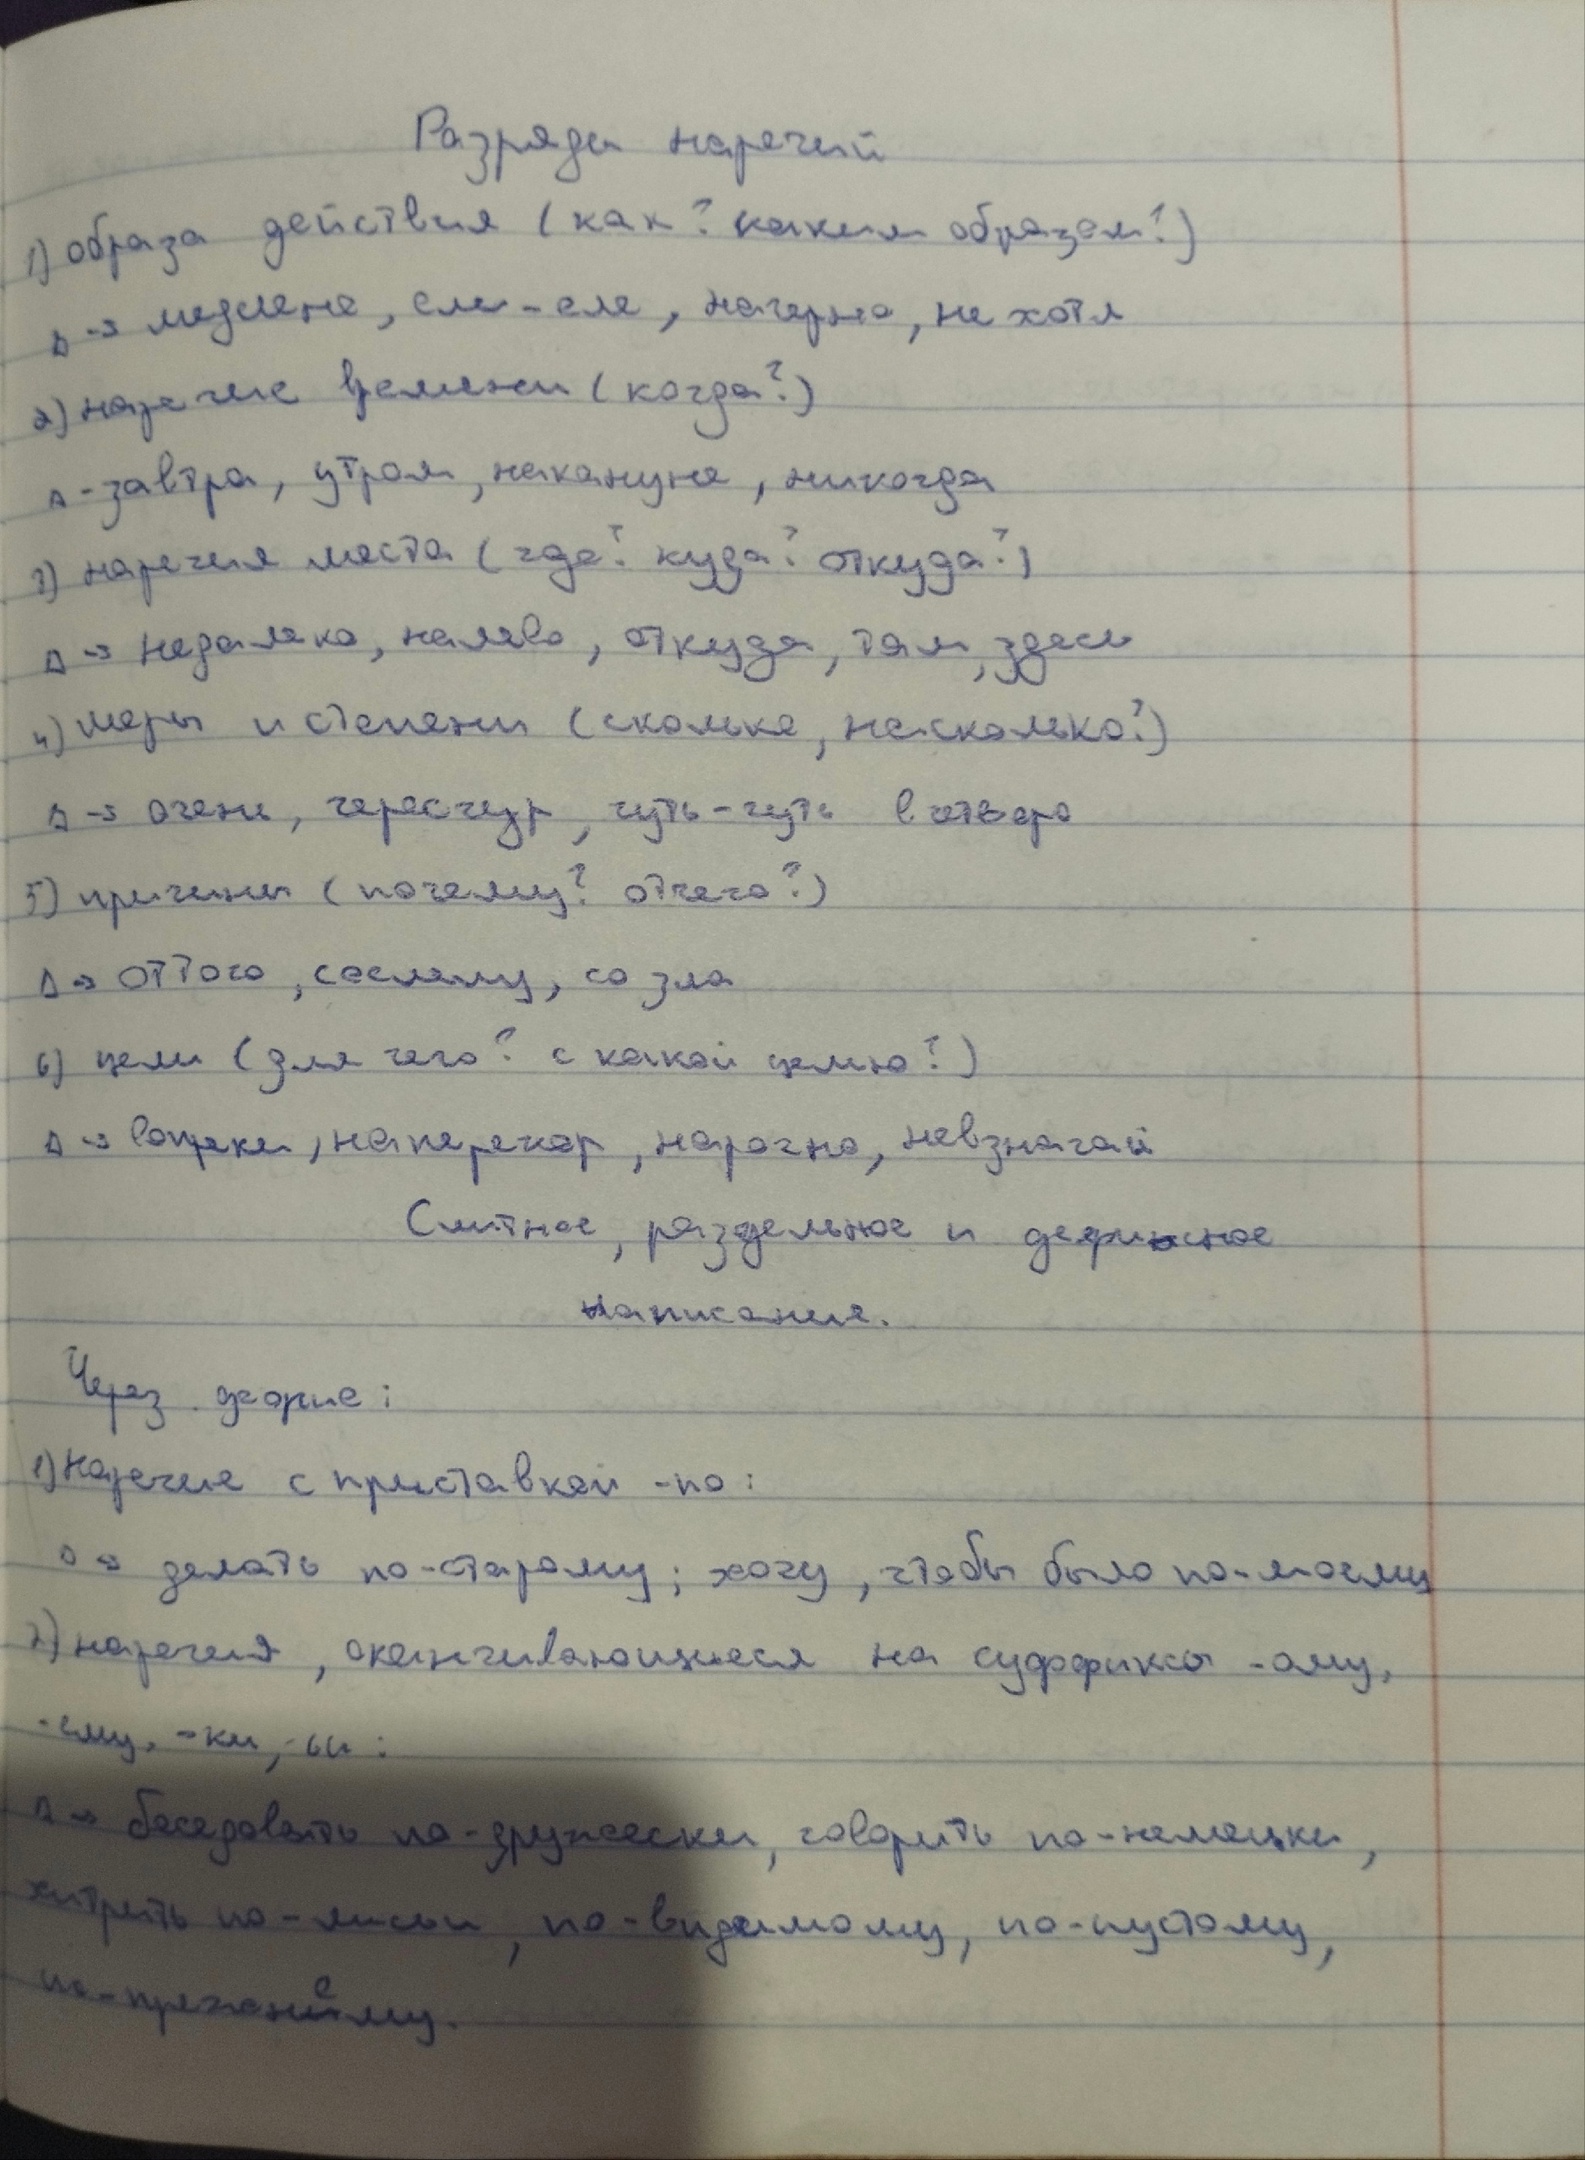 Разряды наречий
1) образа действия (как? каким образом?)
→ медлене, еле-еле, начерно, не хотя
2) наречие времени (когда?)
-завтра, утром, накануне, никогда
3) наречия места (где? куда? откуда?)
→ недалеко, налево, откуда, там, здесь
4) меры и степени (сколько, насколько?)
→ очень, чересчур, чуть-чуть
5) причины (почему? отчего?)
→ оттого, со зла
6) цели (для чего? с какой целью?)
→ вопреки, наперекор, нарочно, невзначай
Слитное, раздельное и дефисное
написания.
Через дефис:
1) Наречие с приставкой -по:
→ делать по-старому; хочу, чтобы было по-моему
2) наречия, оканчивающиеся на суффиксы -ому,
-ему, -ки, -ьи:
→ беседовать по-дружески, говорить по-немецки,
хитрить по-лисьи, по-видимому, по-пустому,
по-прежнему.